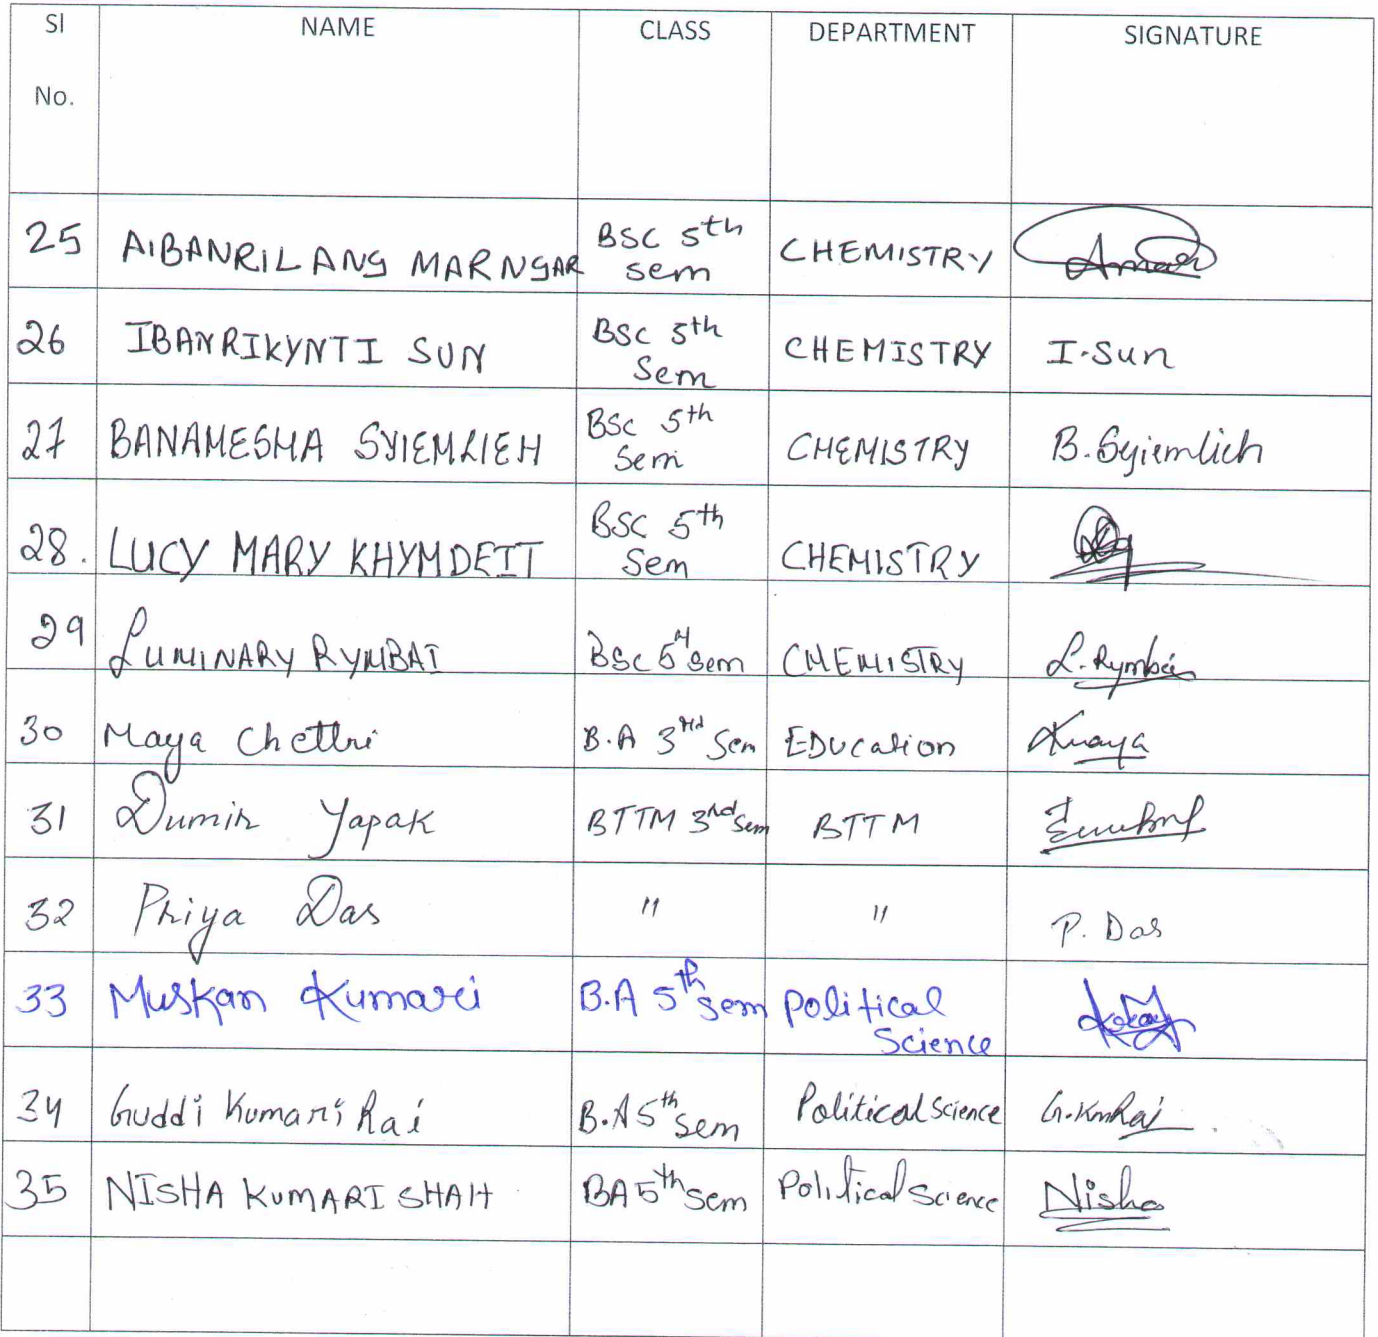 Sl No. NAME CLASS DEPARTMENT SIGNATURE
25 AIBANRILANG MARNGAR BSC 5th sem CHEMISTRY
26 IBANRIKYNTI SUN BSC 5th Sem CHEMISTRY I.Sun
27 BANAMESHA SYIEMLIEH BSc 5th Sem CHEMISTRY B.Syiemlieh
28. LUCY MARY KHYMDEIT BSC 5th Sem CHEMISTRY
29 LUMINARY RYMBAI BSc 5th Sem CHEMISTRY L.Rymbai
30 Maya Chettri B.A 3rd Sem EDucation
31 Dumin Yapak BTTM 3rd sem BTTM
32 Priya Das " " P. Das
33 Muskan Kumari B.A 5th Sem Political Science
34 Guddi Kumari Rai B.A 5th Sem Political Science G.KmRai
35 NISHA KUMARI SHAH BA 5th Sem Political Science Nisha